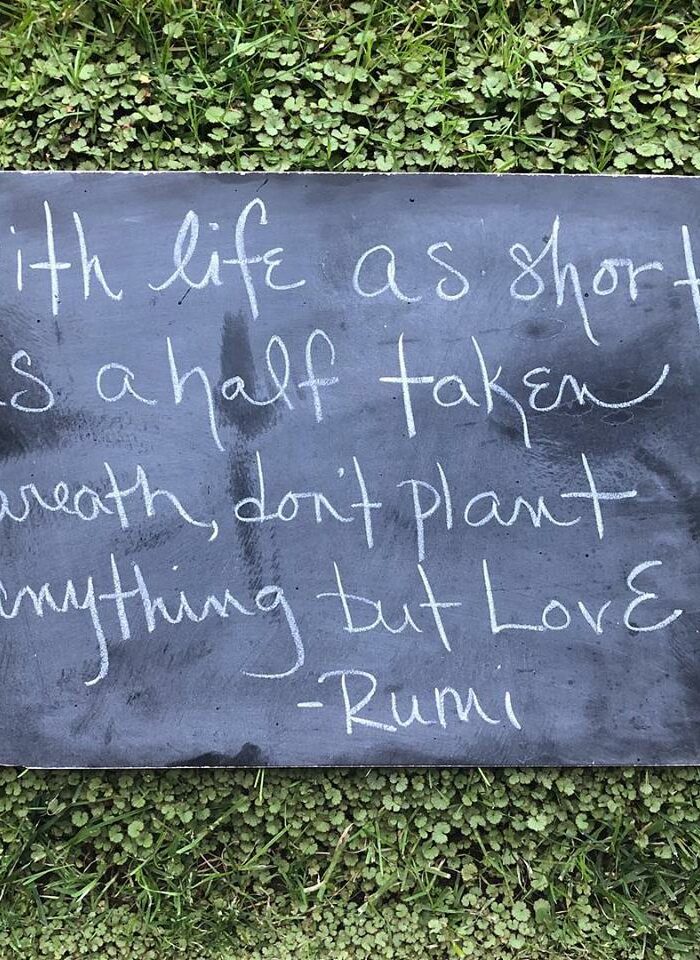 ith life as short
s a half taken
reath, don't plant
anything but Love
-Rumi